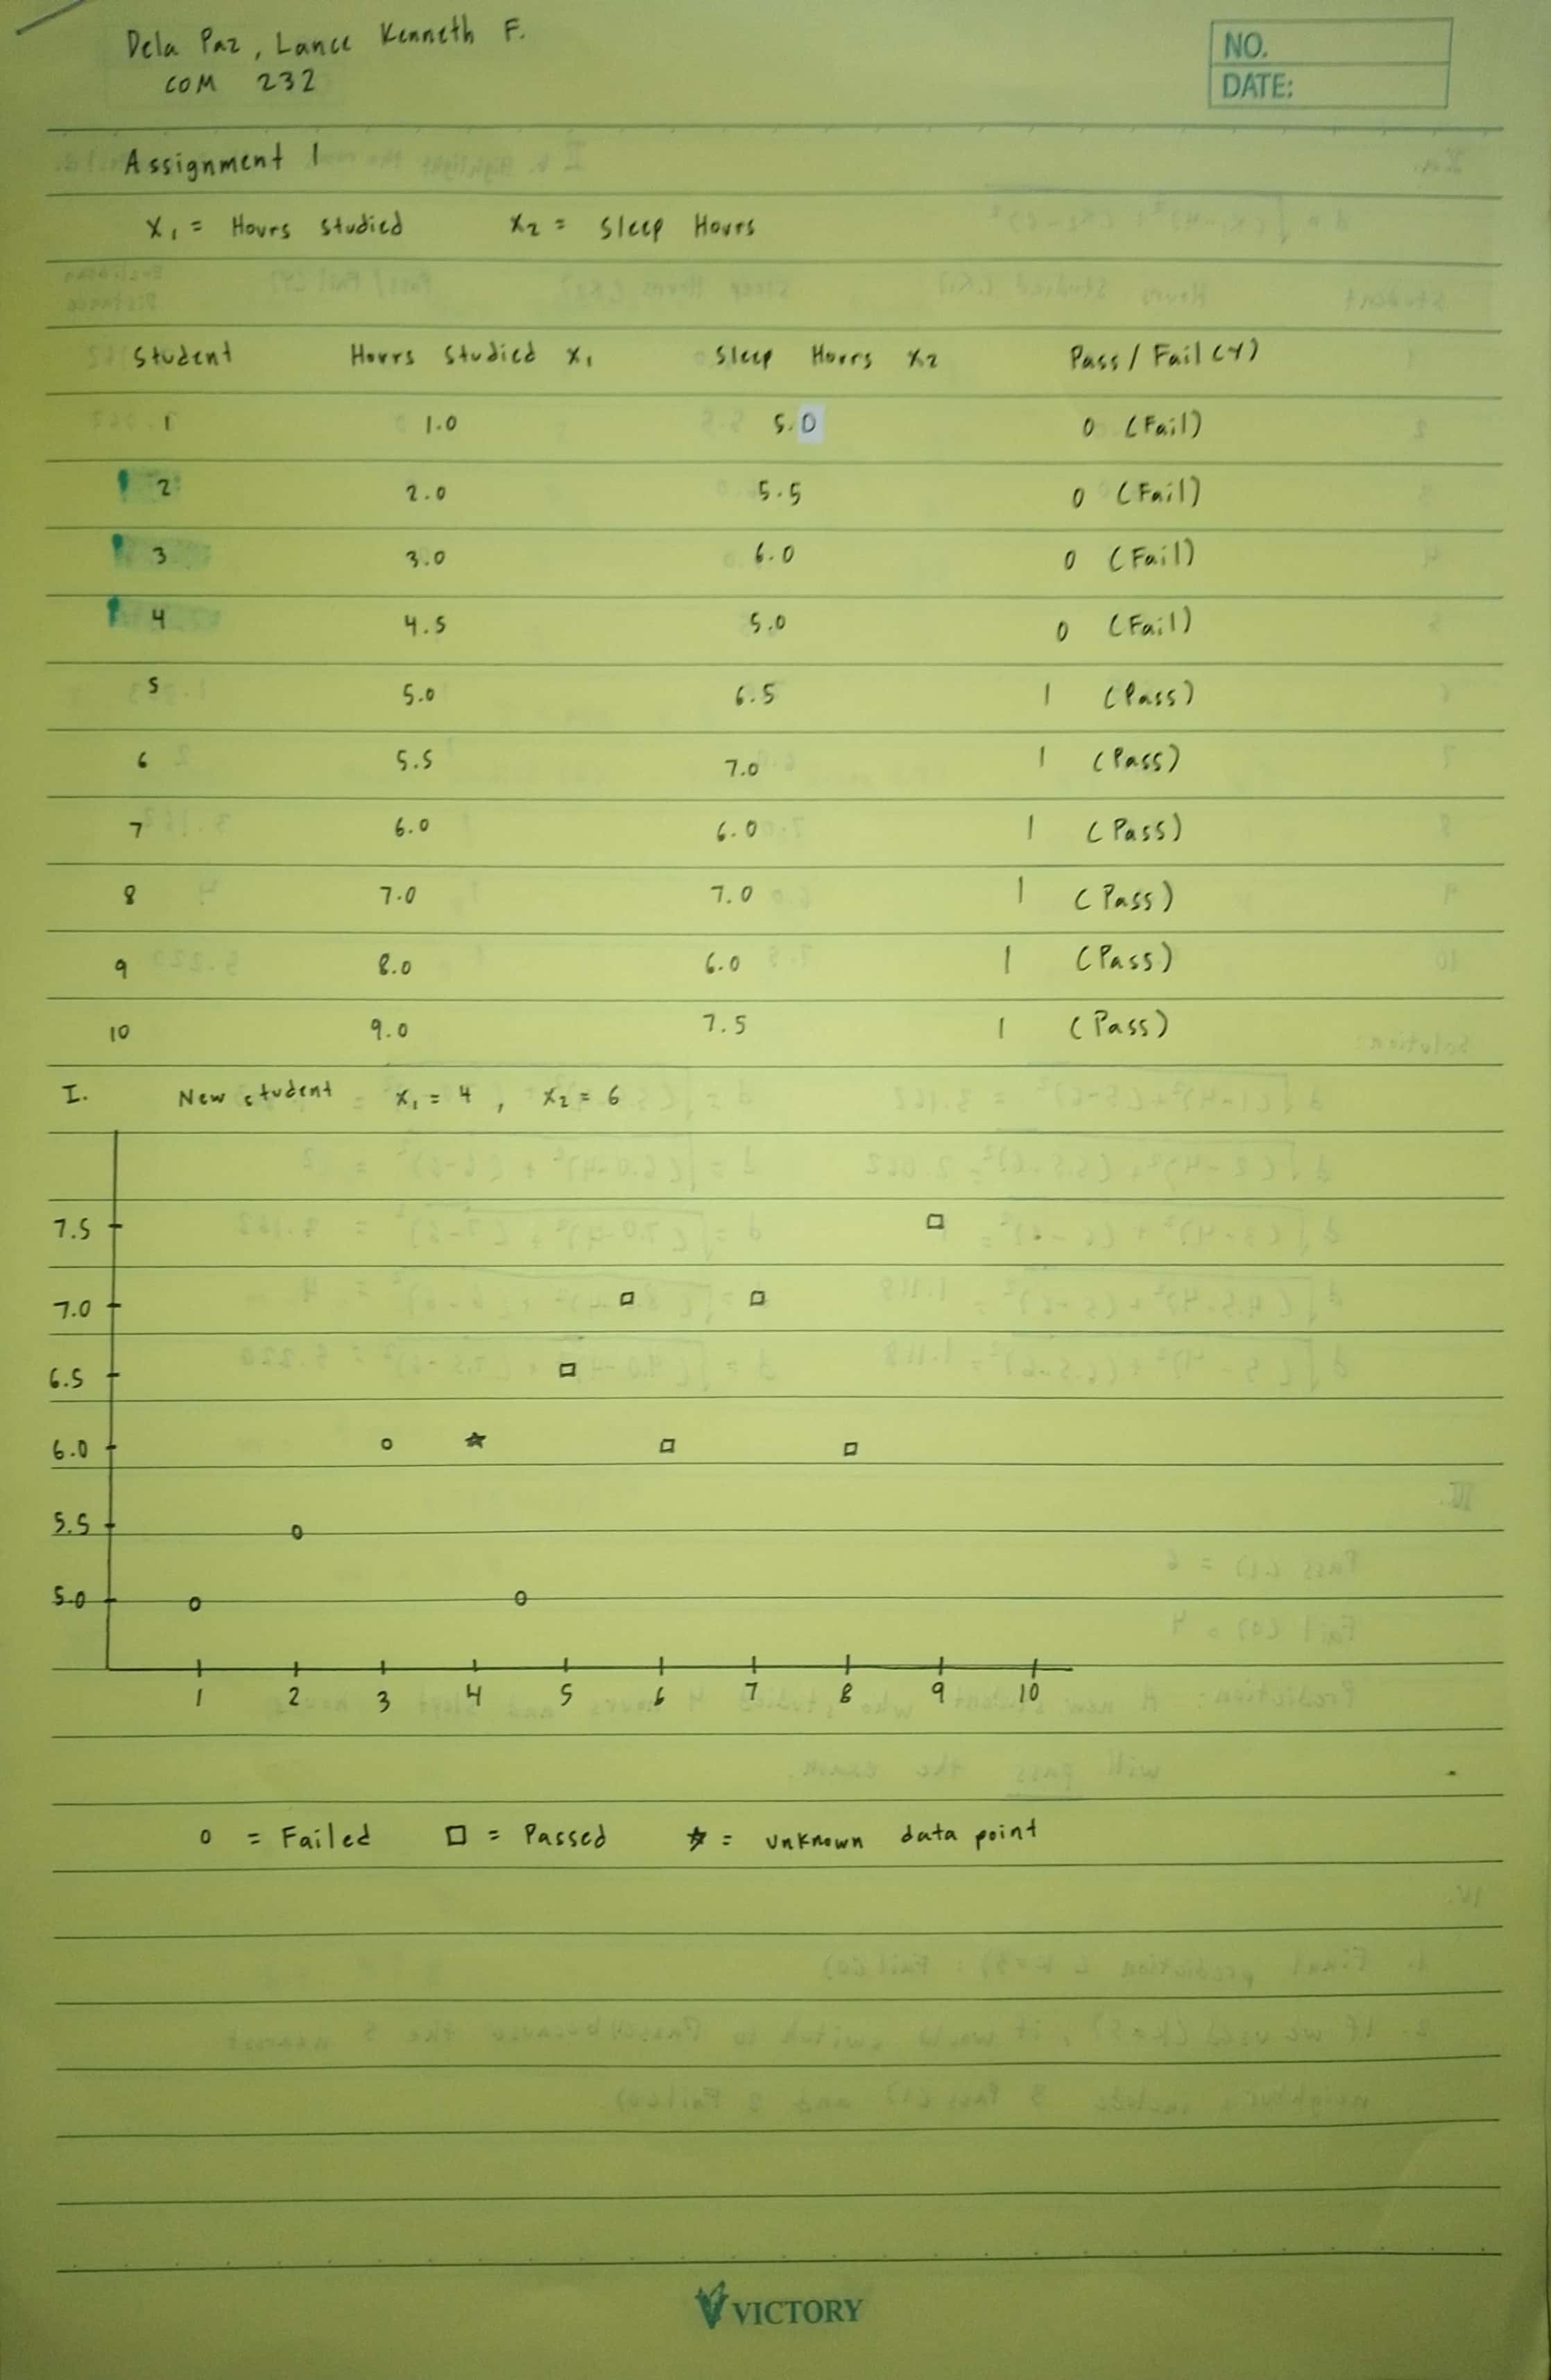 Dela Paz, Lance Kenneth F.
COM 232
NO.
DATE:
Assignment 1
X₁ = Hours Studied X₂ = Sleep Hours
Student Hours Studied X₁ Sleep Hours X₂ Pass / Fail (Y)
1 1.0 5.0 0 (Fail)
2 2.0 5.5 0 (Fail)
3 3.0 6.0 0 (Fail)
4 4.5 5.0 0 (Fail)
5 5.0 6.5 1 (Pass)
6 5.5 7.0 1 (Pass)
7 6.0 6.0 1 (Pass)
8 7.0 7.0 1 (Pass)
9 8.0 6.0 1 (Pass)
10 9.0 7.5 1 (Pass)
I. New student X₁ = 4, X₂ = 6
7.5
7.0
6.5
6.0
5.5
5.0
1 2 3 4 5 6 7 8 9 10
○ = Failed □ = Passed ☆ = unknown data point
VICTORY